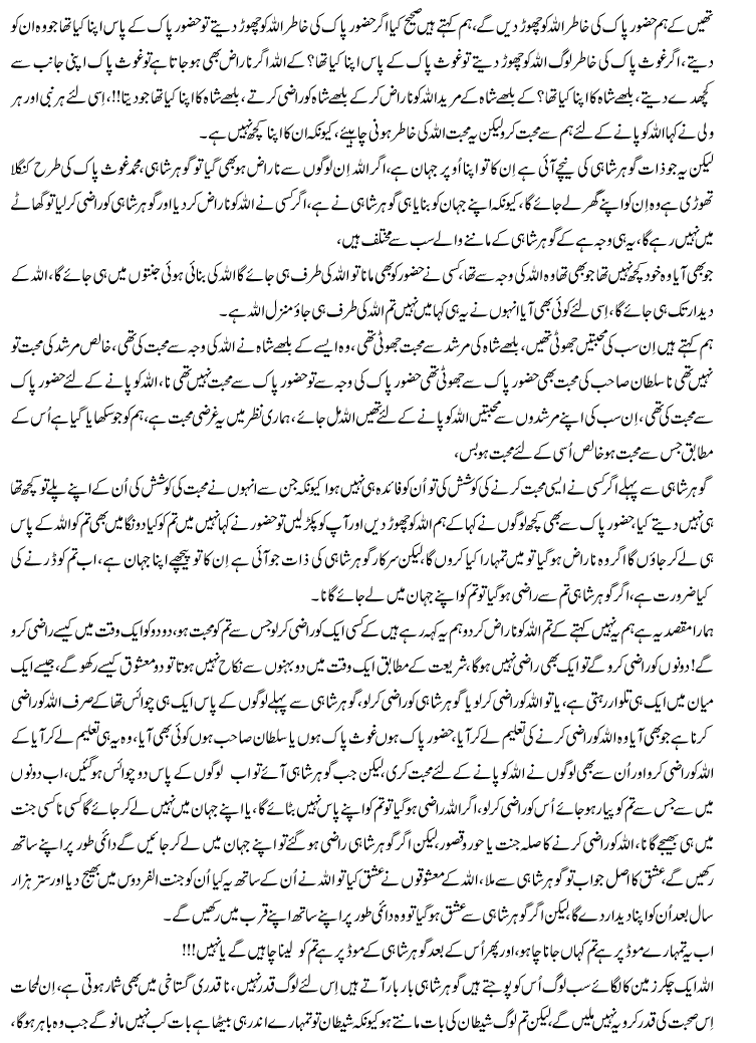 تھیں کے ہم حضور پاک کی خاطر اللہ کو چھوڑ دیں گے، ہم کہتے ہیں صحیح کیا اگر حضور پاک کی خاطر اللہ کو چھوڑ دیتے تو حضور پاک کے پاس اپنا کیا تھا جو وہ ان کو
دیتے، اگر غوث پاک کی خاطر لوگ اللہ کو چھوڑ دیتے تو غوث پاک کے پاس اپنا کیا تھا؟ کے اللہ اگر ناراض بھی ہو جاتا ہے تو غوث پاک اپنی جانب سے
کچھ دے دیتے، بلھے شاہ کا اپنا کیا تھا؟ کے بلھے شاہ کے مرید اللہ کو ناراض کر کے بلھے شاہ کو راضی کرتے، بلھے شاہ کا اپنا کیا تھا جو دیتا!!، اِسی لئے ہر نبی اور ہر
ولی نے کہا اللہ کو پانے کے لئے ہم سے محبت کرو لیکن یہ محبت اللہ کی خاطر ہونی چاہیئے، کیونکہ ان کا اپنا کچھ نہیں ہے۔
لیکن یہ جو ذات گوہر شاہی کی نیچے آئی ہے اِن کا تو اپنا اُوپر جہان ہے، اگر اللہ اِن لوگوں سے ناراض ہو بھی گیا تو گوہر شاہی، محمد غوث پاک کی طرح کنگلا
تھوڑی ہے وہ اِن کو اپنے گھر لے جائے گا، کیونکہ اپنے جہان کو بنایا ہی گوہر شاہی نے ہے، اگر کسی نے اللہ کو ناراض کر دیا اور گوہر شاہی کو راضی کر لیا تو گھاٹے
میں نہیں رہے گا، یہ ہی وجہ ہے کے گوہر شاہی کے ماننے والے سب سے مختلف ہیں،
جو بھی آیا وہ خود کچھ نہیں تھا جو بھی تھا وہ اللہ کی وجہ سے تھا، کسی نے حضور کو بھی مانا تو اللہ کی طرف ہی جائے گا اللہ کی بنائی ہوئی جنتوں میں ہی جائے گا، اللہ کے
دیدار تک ہی جائے گا، اِسی لئے کوئی بھی آیا انہوں نے یہ ہی کہا میں نہیں تم اللہ کی طرف ہی جاؤ منزل اللہ ہے۔
ہم کہتے ہیں اِن سب کی محبتیں جھوٹی تھیں، بلھے شاہ کی مرشد سے محبت جھوٹی تھی، وہ ایسے کے بلھے شاہ نے اللہ کی وجہ سے محبت کی تھی، خالص مرشد کی محبت تو
نہیں تھی نا سلطان صاحب کی محبت بھی حضور پاک سے جھوٹی تھی حضور پاک کی وجہ سے تو حضور پاک سے محبت نہیں تھی نا، اللہ کو پانے کے لئے حضور پاک
سے محبت کی تھی، اِن سب کی اپنے مرشدوں سے محبتیں اللہ کو پانے کے لئے تھیں اللہ مل جائے، ہماری نظر میں یہ غرضی محبت ہے، ہم کو جو سکھایا گیا ہے اُس کے
مطابق جس سے محبت ہو خالص اُسی کے لئے محبت ہو بس،
گوہر شاہی سے پہلے اگر کسی نے ایسی محبت کرنے کی کوشش کی تو اُن کو فائدہ ہی نہیں ہوا کیونکہ جن سے انہوں نے محبت کی کوشش کی اُن کے اپنے پلے تو کچھ تھا
ہی نہیں دیتے کیا، حضور پاک سے بھی کچھ لوگوں نے کہا کے ہم اللہ کو چھوڑ دیں اور آپ کو پکڑ لیں تو حضور نے کہا نہیں میں تم کو کیا دونگا میں بھی تم کو اللہ کے پاس
ہی لے کر جاؤں گا اگر وہ ناراض ہو گیا تو میں تمہارا کیا کروں گا، لیکن سرکار گوہر شاہی کی ذات جو آئی ہے اِن کا تو پیچھے اپنا جہان ہے، اب تم کو ڈرنے کی
کیا ضرورت ہے، اگر گوہر شاہی تم سے راضی ہو گیا تو تم کو اپنے جہان میں لے جائے گا نا۔
ہمارا مقصد یہ ہے ہم یہ نہیں کہتے کے تم اللہ کو ناراض کر دو ہم یہ کہہ رہے ہیں کے کسی ایک کو راضی کر لو جس سے تم کو محبت ہو، دو دو کو ایک وقت میں کیسے راضی کرو
گے! دونوں کو راضی کرو گے تو ایک بھی راضی نہیں ہوگا، شریعت کے مطابق ایک وقت میں دو بہنوں سے نکاح نہیں ہوتا تو دو معشوق کیسے رکھو گے، جیسے ایک
میان میں ایک ہی تلوار رہتی ہے، یا تو اللہ کو راضی کر لو یا گوہر شاہی کو راضی کر لو، گوہر شاہی سے پہلے لوگوں کے پاس ایک ہی چوائس تھا کے صرف اللہ کو راضی
کرنا ہے جو بھی آیا وہ اللہ کو راضی کرنے کی تعلیم لے کر آیا، حضور پاک ہوں غوث پاک ہوں یا سلطان صاحب ہوں کوئی بھی آیا، وہ یہ ہی تعلیم لے کر آیا کے
اللہ کو راضی کرو اور اُن سے بھی لوگوں نے اللہ کو پانے کے لئے محبت کری، لیکن جب گوہر شاہی آئے تو اب لوگوں کے پاس دو چوائس ہو گئیں، اب دونوں
میں سے جس سے تم کو پیار ہو جائے اُس کو راضی کر لو، اگر اللہ راضی ہو گیا تو تم کو اپنے پاس نہیں بٹائے گا، یا اپنے جہان میں نہیں لے کر جائے گا کسی نا کسی جنت
میں ہی بھیجے گا نا، اللہ کو راضی کرنے کا صلہ جنت یا حور و قصور، لیکن اگر گوہر شاہی راضی ہو گئے تو اپنے جہان میں لے کر جائیں گے دائمی طور پر اپنے ساتھ
رکھیں گے، عشق کا اصل جواب تو گوہر شاہی سے ملا، اللہ کے معشوقوں نے عشق کیا تو اللہ نے اُن کے ساتھ یہ کیا اُن کو جنت الفردوس میں بھیج دیا اور ستر ہزار
سال بعد اُن کو اپنا دیدار دے گا، لیکن اگر گوہر شاہی سے عشق ہو گیا تو وہ دائمی طور پر اپنے ساتھ اپنے قرب میں رکھیں گے۔
اب یہ تمہارے موڈ پر ہے تم کہاں جانا چاہو، اور پھر اُس کے بعد گوہر شاہی کے موڈ پر ہے تم کو لینا چاہیں گے یا نہیں!!!
اللہ ایک چکر زمین کا لگائے سب لوگ اُس کو پوجتے ہیں گوہر شاہی بار بار آتے ہیں اِس لئے لوگ قدر نہیں، نا قدری گستاخی میں بھی شمار ہوتی ہے، اِن لمحات
اِس صحبت کی قدر کرو یہ نہیں ملیں گے، لیکن تم لوگ شیطان کی بات مانتے ہو کیونکہ شیطان تو تمہارے اندر ہی بیٹھا ہے بات کب نہیں مانو گے جب وہ باہر ہوگا،